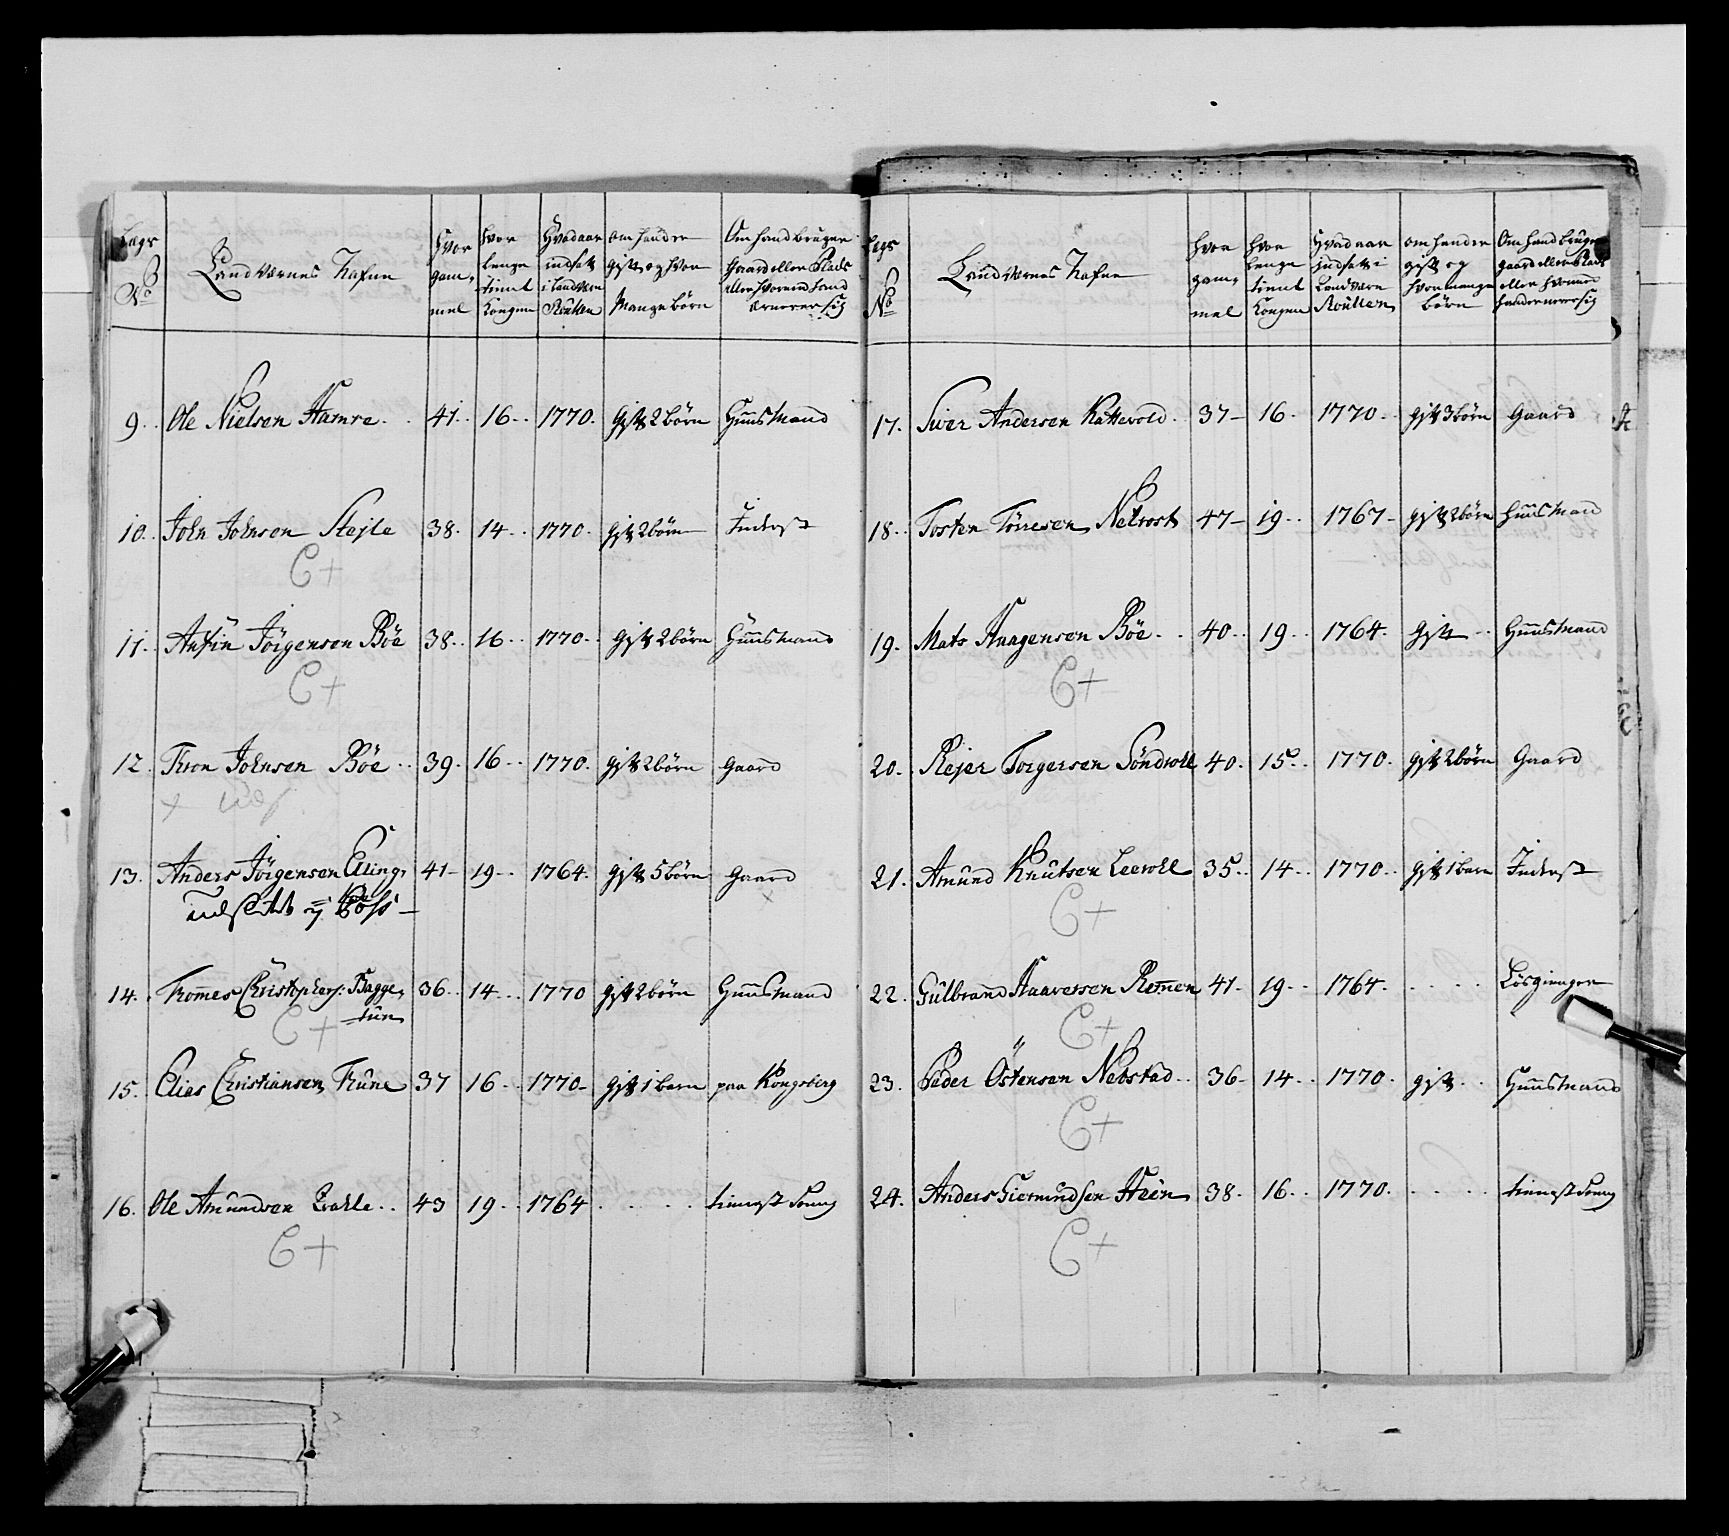 Legs No | Landværnes Nafne | Hvor gam, mel | hvor lenge tient Kongen | Hvad aar indsatt i landværn Roullen | om hand er gift og hvor Mange børn | Om hand bruger Gaard eller Plads eller hvormed hand ernerer sig
9. Ole Nielsen Hamre. 41. 16. 1770. gift 2 børn Huusmand
10. John Johnsen Stejle 38. 14. 1770. gift 2 børn Inderst
C+
11. Anfin Jörgensen Böe 38. 16. 1770. gift 2 børn Huusmand
C+
12. Tron Johnsen Böe 39. 16. 1770. gift 2 børn Gaard
+ udsl
13. Anders Jörgensen Eling, 41 19. 1764. gift 5 børn Gaard
udslettet
14. Tromes Christophers: Bagge, 36. 14. 1770 gift 2 børn Huusmand
tun
C+
15. Elias Christiansen Trúne 37 16. 1770 gift 1 barn paa Kongsberg
16. Ole Amundsen 43 19. 1764 . . . . tienest Song
C+
Legs No | Landværnes Nafne | hvor gam, mel | hvor lenge tient Kongen | Hvad aar indsatt i Landværn Roullen | om hand er gift og hvor mange børn | Om hand bruger gaard eller Plads eller hvormed hand ernerer sig
17. Siver Andersen Kattevold. 37 16. 1770. gift 3 børn Gaard
18. Tosten Törresen 47 19. 1767 gift 2 børn Huusmand
19. Mats Haagensen Böe. 40. 19. 1764. gift Huusmand
C+
20. Rejer Torgersen Söndroll 40. 15. 1770. gift 2 børn Gaard
21. Amúnd Knútsen Leeroll 35. 14. 1770. gift 1 barn Inderst
C+
22. Gúlbrand Haaversen Remen 41. 19. 1764. . . . . Lösgienger
C+
23. Peder Östensen Nebstad. 36 14. 1770. gift Huusmand
C+
24. Anders Giermundsen Haën 38. 16. 1770. . . . . tienest Song
C+